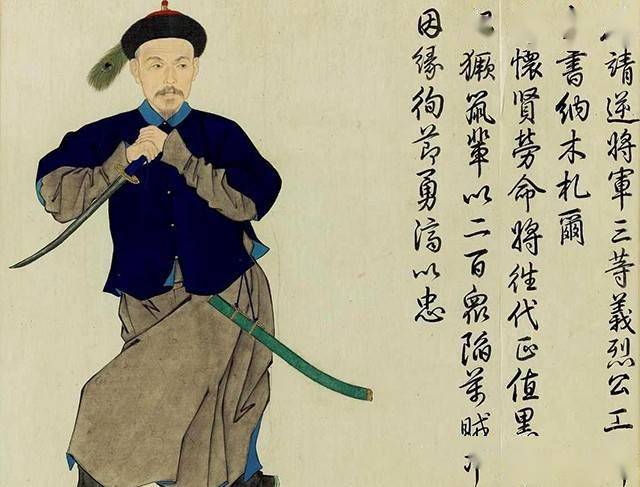 靖逆將軍三等義烈公工
書納木札爾
懷賢勞命將往代正值黑
獗鼠輩以二百眾陷萬賊
因緣徇節勇濟以忠